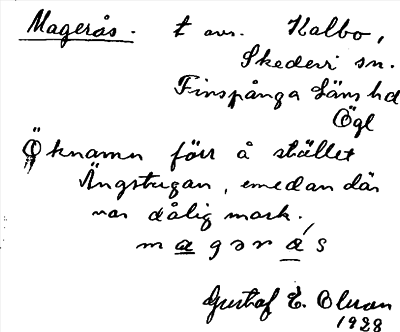 Magerås. t avs. Kalbo,
Skedevi sn.
Finspånga Läns hd
Ögl
Öknamn förr å stället
Ängstugan, emedan där
var dålig mark.
magərås
Gustaf E. Olsson
1928